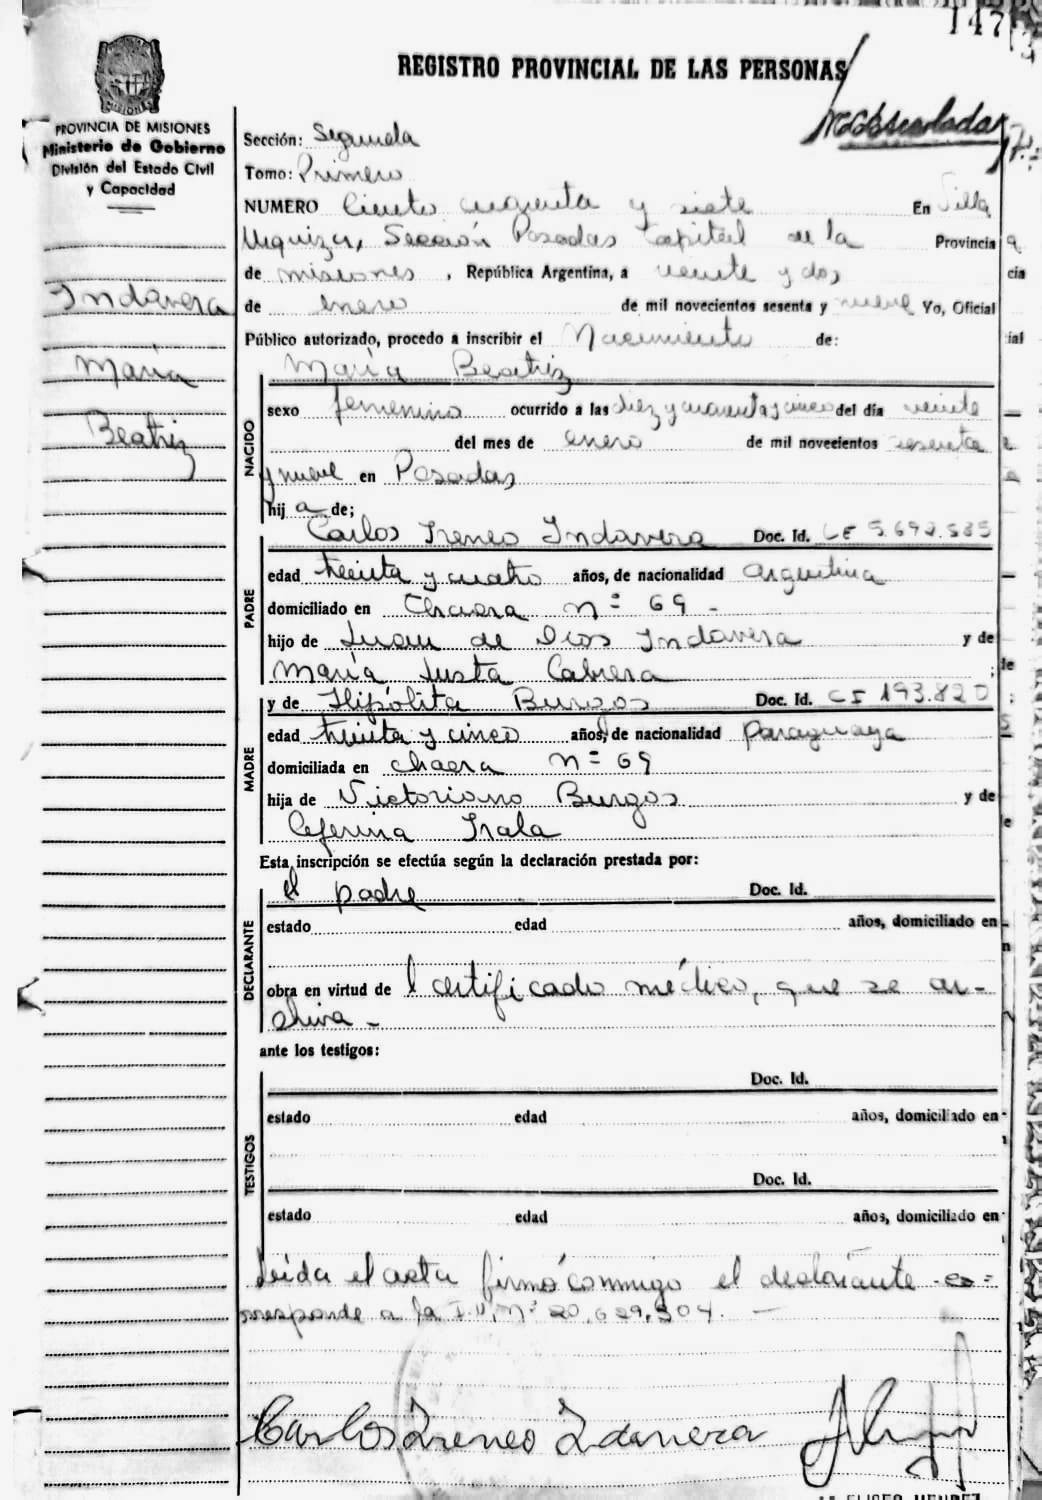 147
REGISTRO PROVINCIAL DE LAS PERSONAS
MISIONES
PROVINCIA DE MISIONES
Ministerio de Gobierno
División del Estado Civil
y Capacidad
Indavera
María
Beatriz
Sección: Segunda
Tomo: Primero
NUMERO Ciento cuarenta y siete En Villa
Urquiza, Sección Posadas Capital de la Provincia
de misiones, República Argentina, a veinte y dos
de enero de mil novecientos sesenta y nueve Yo, Oficial
Público autorizado, procedo a inscribir el Nacimiento de:
NACIDO
María Beatriz
sexo femenino ocurrido a las diez y cuarenta y cinco del día veinte
del mes de enero de mil novecientos sesenta
y nueve en Posadas
hij a de;
PADRE
Carlos Ireneo Indavera Doc. Id. LE 5.692.535
edad treinta y cuatro años, de nacionalidad argentina
domiciliado en Chacra nº 69 -
hijo de Juan de Dios Indavera y de
María Justa Cabrera
MADRE
y de Hipólita Burgos Doc. Id. CI 193.820
edad treinta y cinco años, de nacionalidad paraguaya
domiciliada en chacra nº 69
hija de Victoriano Burgos y de
Ceferina Irala
Esta inscripción se efectúa según la declaración prestada por:
DECLARANTE
el padre Doc. Id.
estado edad años, domiciliado en
obra en virtud de l certificado médico, que se ar-
chiva -
ante los testigos:
TESTIGOS
Doc. Id.
estado edad años, domiciliado en
Doc. Id.
estado edad años, domiciliado en
Leída el acta firmó conmigo el declarante - co=
rresponde a la I.M. Nº 20.629.304. -
Carlos Ireneo Idavera
ELISEO MENDEZ